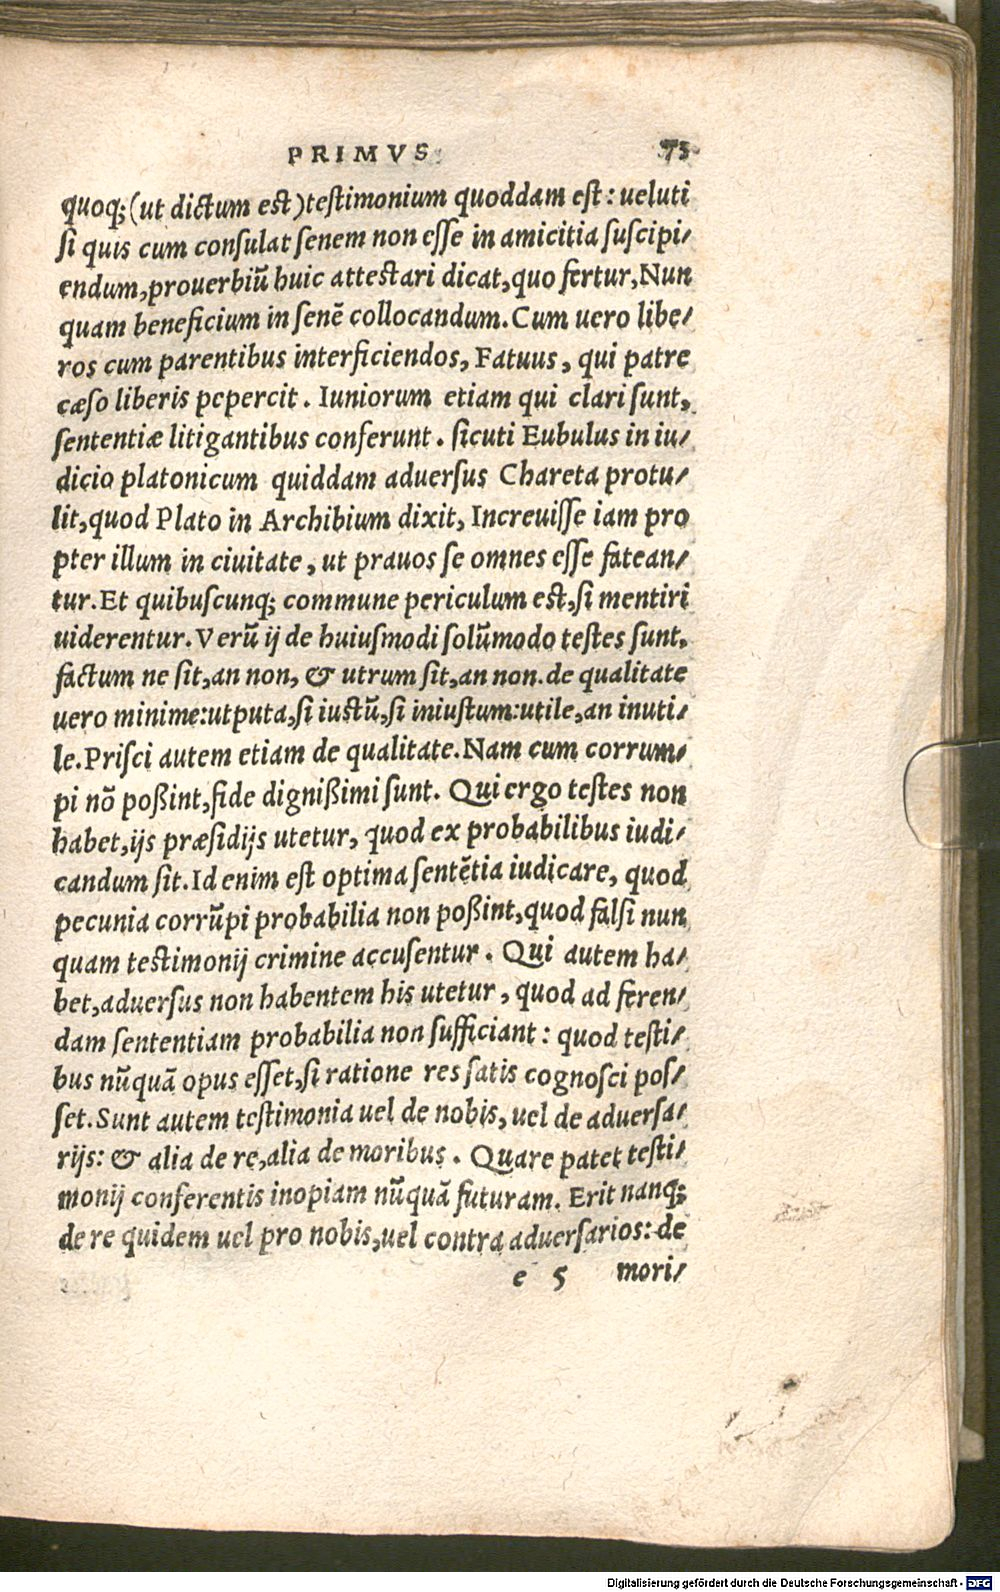 PRIMVS 73
quoq;(ut dictum est)testimonium quoddam est: ueluti
si quis cum consulat senem non esse in amicitia suscipi/
endum,prouerbiũ huic attestari dicat,quo fertur,Nun
quam beneficium in senẽ collocandum.Cum uero libe/
ros cum parentibus interficiendos, Fatuus, qui patre
cæso liberis pepercit. Iuniorum etiam qui clari sunt,
sententiæ litigantibus conferunt. sicuti Eubulus in iu/
dicio platonicum quiddam aduersus Chareta protu/
lit,quod Plato in Archibium dixit, Increuisse iam pro
pter illum in ciuitate, ut prauos se omnes esse fatean/
tur.Et quibuscunq; commune periculum est,si mentiri
uiderentur.Verũ ij de huiusmodi solũmodo testes sunt,
factum ne sit,an non, & utrum sit,an non.de qualitate
uero minime:utputa,si iustũ,si iniustum:utile,an inuti/
le.Prisci autem etiam de qualitate.Nam cum corrum/
pi nõ poßint,fide dignißimi sunt. Qui ergo testes non
habet,ijs præsidijs utetur, quod ex probabilibus iudi/
candum sit.Id enim est optima sentẽtia iudicare, quod
pecunia corrũpi probabilia non poßint,quod falsi nun
quam testimonij crimine accusentur. Qui autem ha/
bet,aduersus non habentem his utetur, quod ad feren/
dam sententiam probabilia non sufficiant: quod testi/
bus nũquã opus esset,si ratione res satis cognosci pos/
set.Sunt autem testimonia uel de nobis, uel de aduersa/
rijs: & alia de re,alia de moribus. Quare patet testi/
monij conferentis inopiam nũquã futuram. Erit nanq;
de re quidem uel pro nobis,uel contra aduersarios: de
e 5 mori/
Digitalisierung gefördert durch die Deutsche Forschungsgemeinschaft - DFG